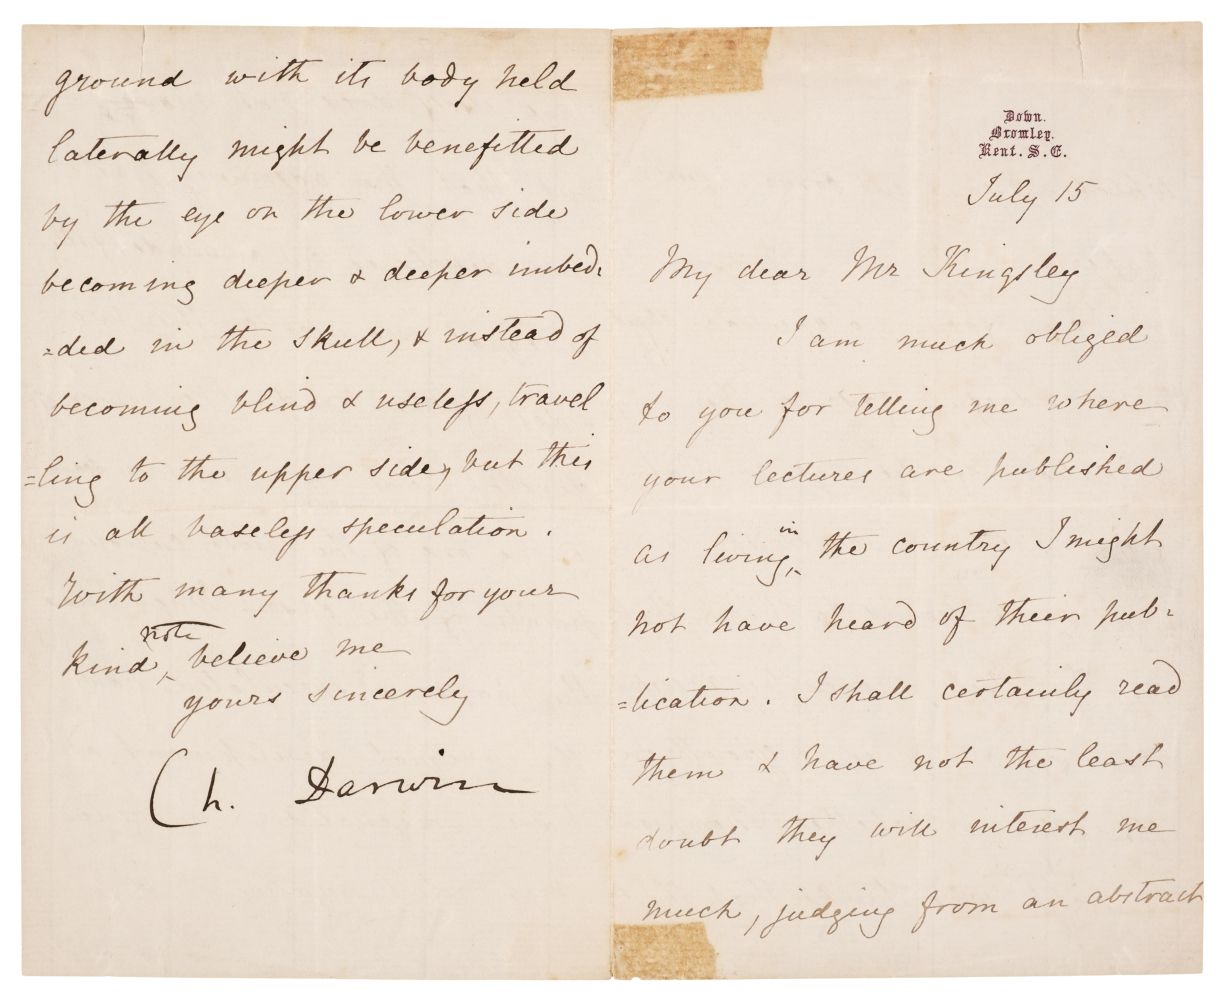 Down.
Bromley.
Kent. S.E.
July 15
My dear Mr Kingsley
I am much obliged
to you for telling me where
your lectures are published
as living in the country I might
not have heard of their pub-
=lication. I shall certainly read
them & have not the least
doubt they will interest me
much, judging from an abstract
ground with its body held
laterally might be benefitted
by the eye on the lower side
becoming deeper & deeper imbed-
=ded in the skull, & instead of
becoming blind & useless, travel
=ling to the upper side, but this
is all baseless speculation.
With many thanks for your
kind note, believe me
yours sincerely
Ch. Darwin